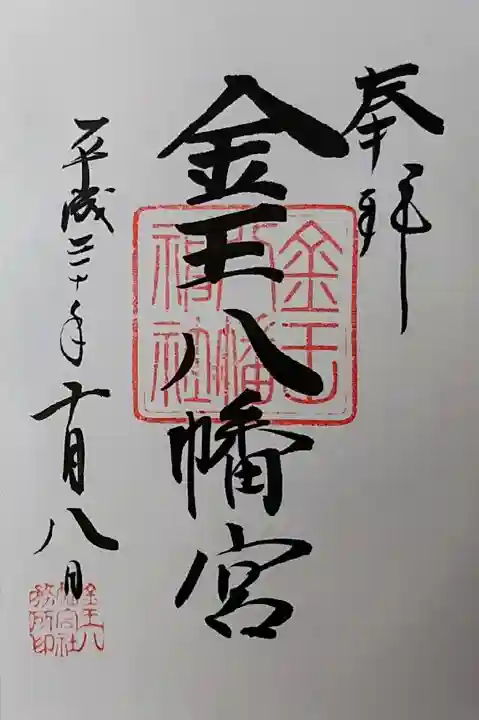 奉拝
金王八幡宮
平成三十年十月八日
金王八幡神社
金王八幡宮社務所印